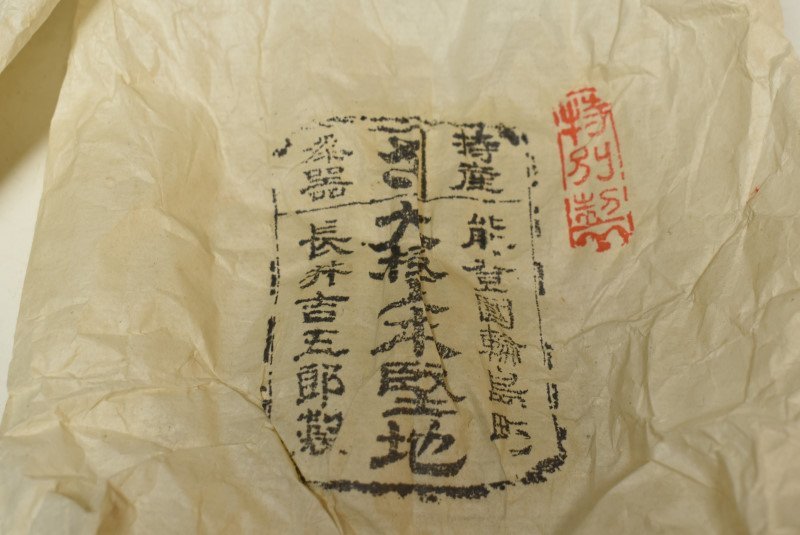 特別製
特産
能登國輪島町
大極本堅地
漆器
長井吉五郎製